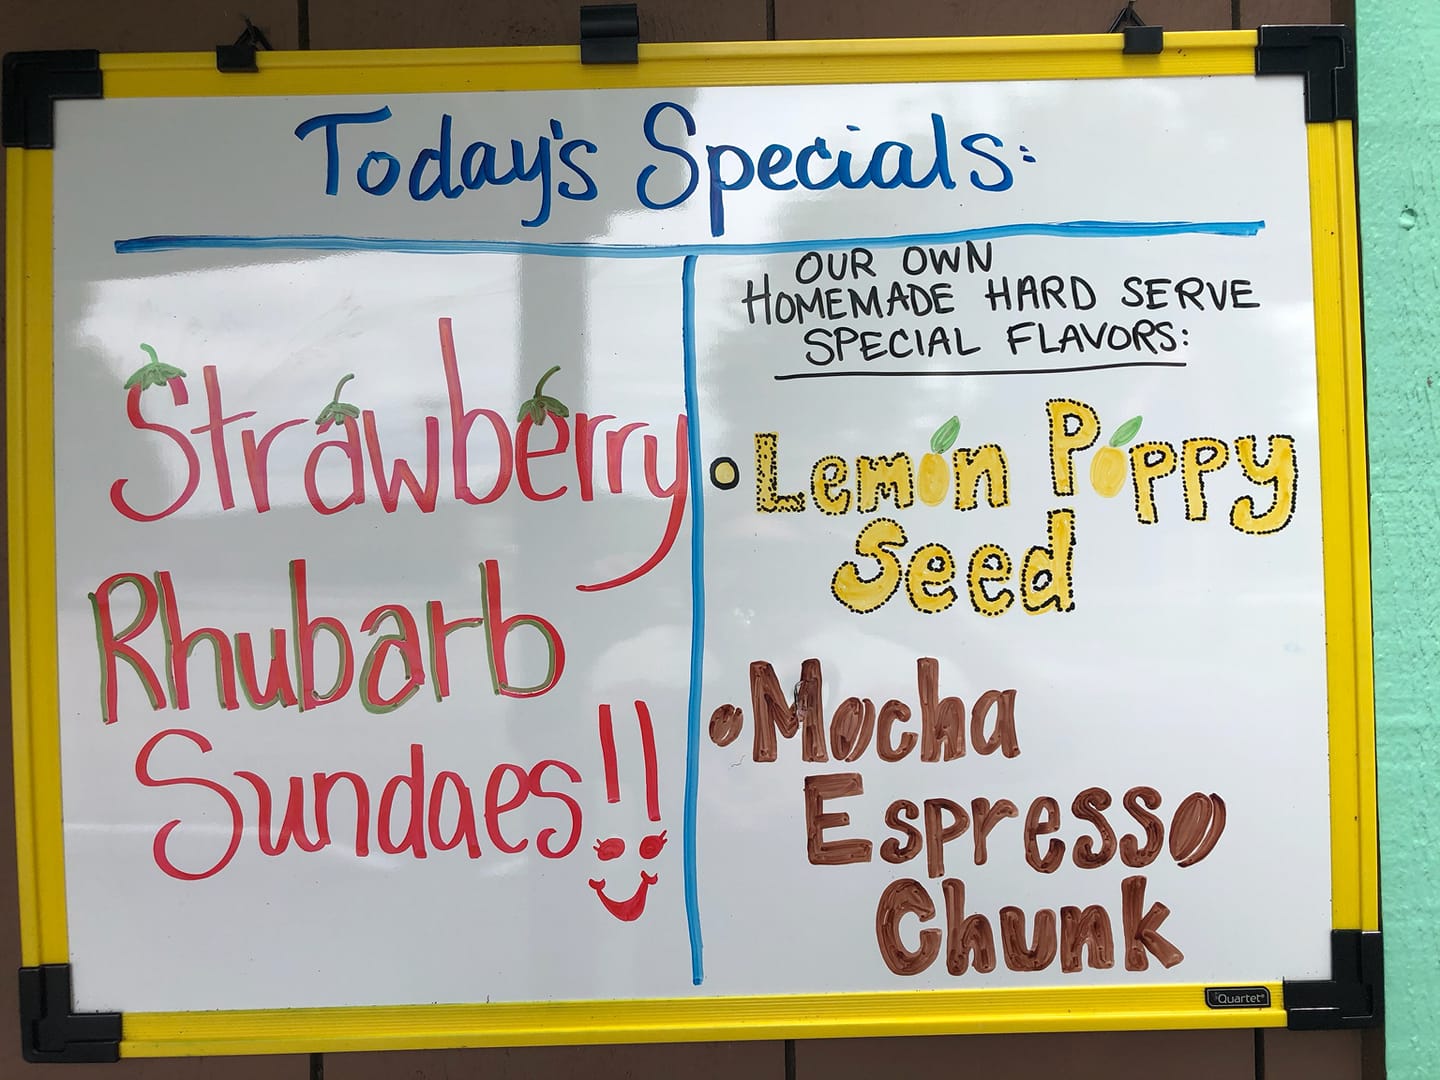 Today's Specials:
Strawberry
Rhubarb
Sundaes!!
OUR OWN
HOMEMADE HARD SERVE
SPECIAL FLAVORS:
• Lemon Poppy
Seed
• Mocha
Espresso
Chunk
Quartet®